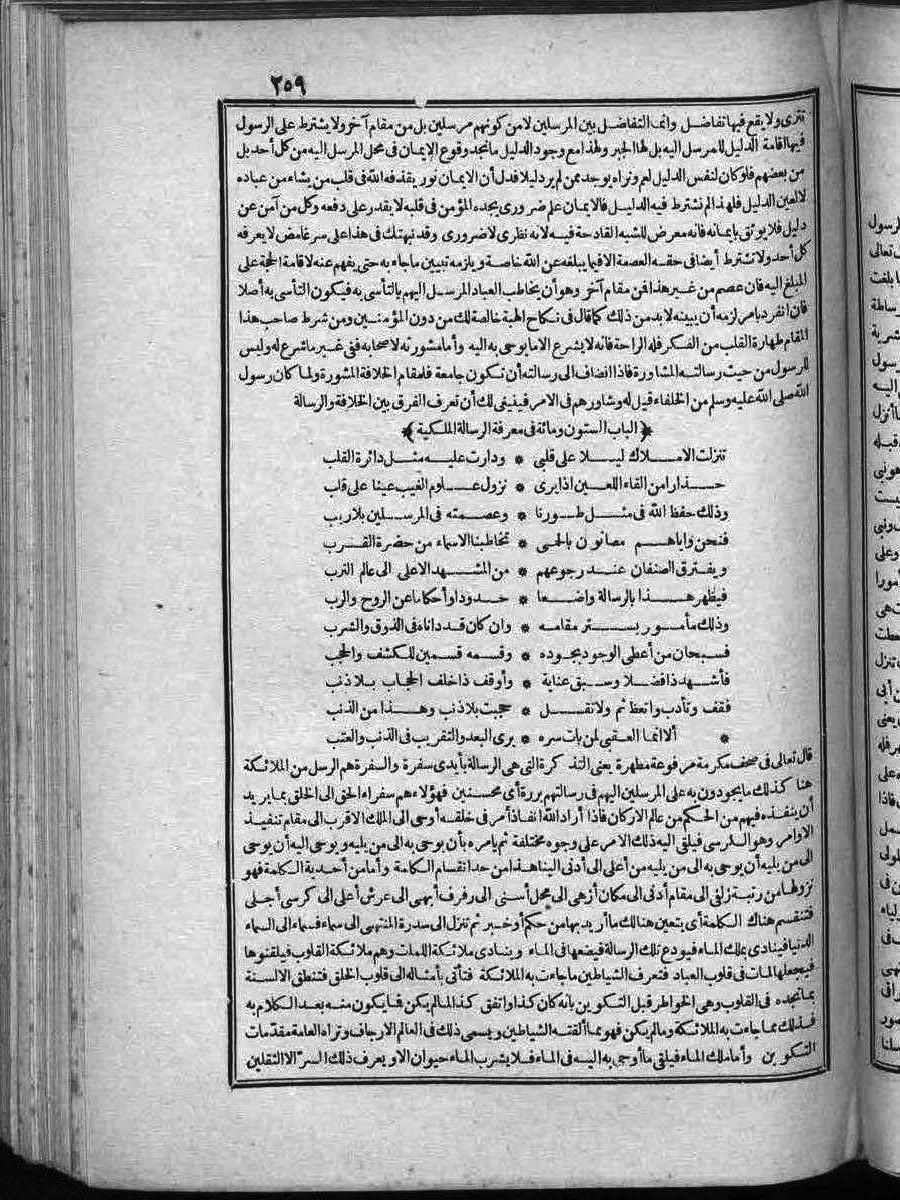 ٢٥٩
تترى ولا يقع فيها تفاضل وانما التفاضل بين المرسلين لا من كونهم مرسلين بل من مقام آخر ولا يشترط على الرسول
فيها اقامة الدليل للمرسل اليه بل لها الجبر ولهذا مع وجود الدليل ما نجد وقوع الايمان فى محل المرسل اليه من كل أحد بل
من بعضهم فلو كان لنفس الدليل لعم ونراه يوجد ممن لم ير دليلا فدل أن الايمان نور يقذفه الله فى قلب من يشاء من عباده
لا لعين الدليل فلهذا لم نشترط فيه الدليل فالايمان علم ضرورى يجده المؤمن فى قلبه لا يقدر على دفعه وكل من آمن عن
دليل فلا يوثق بايمانه فانه معرض للشبه القادحة فيه لانه نظرى لا ضرورى وقد نبهتك فى هذا على سر غامض لا يعرفه
كل أحد ولا نشترط أيضا فى حقه العصمة الا فيما يبلغه عن الله خاصة ويلزمه تبيين ما جاء به حتى يفهم عنه لاقامة الحجة على
المبلغ اليه فان عصم من غير هذا فمن مقام آخر وهو أن يخاطب العباد المرسل اليهم بالتأسى به فيكون التأسى به أصلا
فان انفرد بامر لزمه أن يبينه لا بد من ذلك كما قال فى نكاح الهبة خالصة لك من دون المؤمنين ومن شرط صاحب هذا
المقام طهارة القلب من الفكر فله الراحة فانه لا يشرع الا ما يوحى به اليه وأما مشورته لاصحابه ففى غير ما شرع له وليس
للرسول من حيث رسالته المشاورة فاذا انضاف الى رسالته أن تكون جامعة فلمقام الخلافة المشورة ولما كان رسول
الله صلى الله عليه وسلم من الخلفاء قيل له وشاورهم فى الامر فينبغى لك أن تعرف الفرق بين الخلافة والرسالة
﴿الباب الستون ومائة فى معرفة الرسالة الملكية﴾
تنزلت الاملاك ليلا على قلبى * ودارت عليه مثل دائرة القلب
حذارا من القاء اللعين اذا يرى * نزول علوم الغيب عينا على قلب
وذلك حفظ الله فى مثل طورنا * وعصمته فى المرسلين بلا ريب
فنحن واياهم مصانون بالحمى * تخاطبنا الاسماء من حضرة القرب
ويفترق الصنفان عند رجوعهم * من المشهد الاعلى الى عالم الترب
فيظهر هذا بالرسالة واضعا * حدودا وأحكاما عن الروح والرب
وذلك مأمور بستر مقامه * وان كان قد داناه فى الذوق والشرب
فسبحان من أعطى الوجود بجوده * وقسمه قسمين للكشف والحجب
فأشهد ذا فضلا وسبق عناية * وأوقف ذا خلف الحجاب بلا ذنب
فقف وتأدب واتعظ ثم ولا تقل * حجبت بلا ذنب وهذا من الذنب
* ألا انما العقبى لمن بات سره * يرى البعد والتقريب فى الذنب والعتب
قال تعالى فى صحف مكرمة مرفوعة مطهرة يعنى التذكرة التى هى الرسالة بأيدى سفرة والسفرة هم الرسل من الملائكة
هنا كذلك ما يجودون به على المرسلين اليهم فى رسالتهم بررة أى محسنين فهؤلاء هم سفراء الحق الى الخلق بما يريد
أن ينفذه فيهم من الحكم من عالم الاركان فاذا أراد الله انفاذ أمر فى خلقه أوحى الى الملك الاقرب الى مقام تنفيذ
الاوامر وهو الكرسى فيلقى اليه ذلك الامر على وجوه مختلفة ثم يامره بأن يوحى به الى من يليه ويوحى اليه أن يوحى
الى من يليه أن يوحى به الى من يليه من أعلى الى أدنى الينا هذا من حد انقسام الكلمة وأما من أحدية الكلمة فهو
نزولها من رتبة زلفى الى مقام أدنى الى مكان أزهى الى محل أسنى الى رفرف أبهى الى عرش أعلى الى كرسى أجلى
فتنقسم هناك الكلمة أى يتعين هنالك ما أريد بها من حكم أو خبر ثم تنزل الى سدرة المنتهى الى سماء فسماء الى السماء
الدنيا فينادى بملك الماء فيودع تلك الرسالة فيضعها فى الماء وينادى ملائكة اللمات وهم ملائكة القلوب فيلقنوها
فيجعلها لمات فى قلوب العباد فتعرف الشياطين ما جاءت به الملائكة فتأتى بأمثاله الى قلوب الخلق فتنطق الالسنة
بما تجده فى القلوب وهى الخواطر قبل التكوين بانه كان كذا واتفق كذا لما لم يكن فما يكون منه بعد الكلام به
فذلك مما جاءت به الملائكة وما لم يكن فهو مما ألقته الشياطين ويسمى ذلك فى العالم الارجاف وتراه العامة مقدمات
التكوين وأما ملك الماء فيلقى ما أوحى به اليه فى الماء فلا يشرب الماء حيوان الا ويعرف ذلك السر الا الثقلين